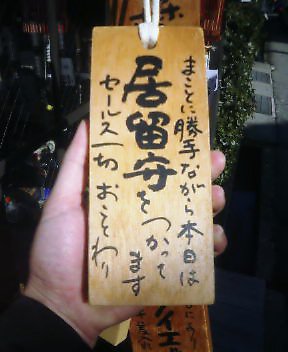 まことに勝手ながら本日は
居留守をつかって
ます
セールス一切おことわり